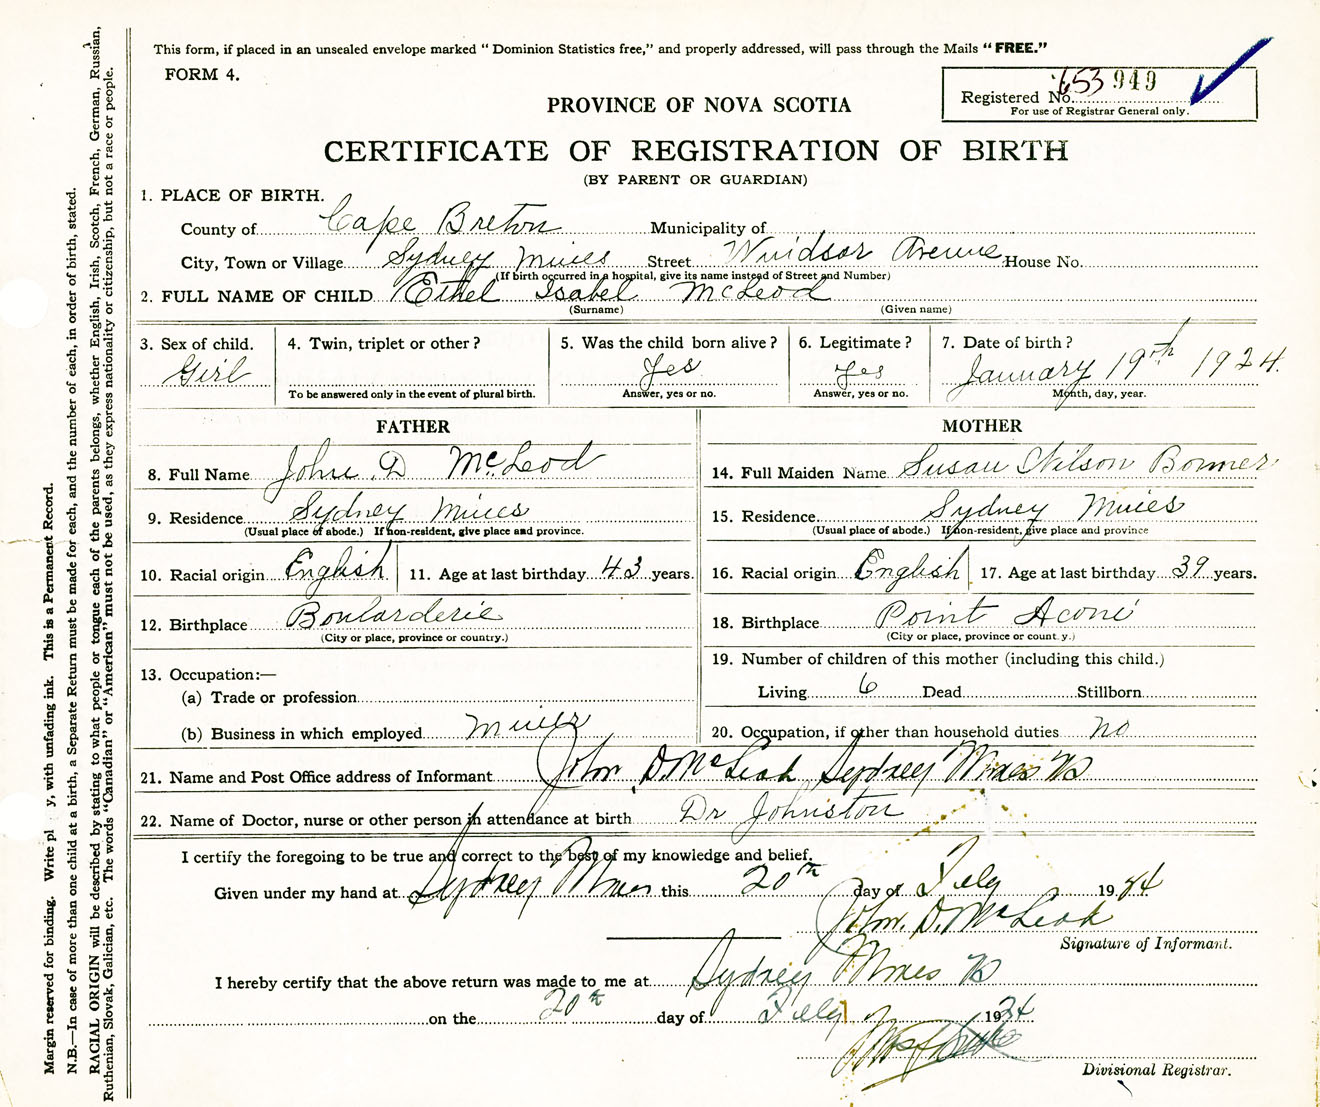 This form, if placed in an unsealed envelope marked "Dominion Statistics free," and properly addressed, will pass through the Mails "FREE."
FORM 4.
Registered No. 653 949
For use of Registrar General only.
PROVINCE OF NOVA SCOTIA
CERTIFICATE OF REGISTRATION OF BIRTH
(BY PARENT OR GUARDIAN)
1. PLACE OF BIRTH.
County of Cape Breton Municipality of
City, Town or Village Sydney Mines Street Windsor Avenue House No.
(If birth occurred in a hospital, give its name instead of Street and Number)
2. FULL NAME OF CHILD Ethel Isabel McLeod
(Surname) (Given name)
3. Sex of child. 4. Twin, triplet or other? 5. Was the child born alive? 6. Legitimate? 7. Date of birth?
Girl Yes Yes January 19th 1924.
To be answered only in the event of plural birth. Answer, yes or no. Answer, yes or no. Month, day, year.
FATHER MOTHER
8. Full Name John D McLeod 14. Full Maiden Name Susan Wilson Bonner
9. Residence Sydney Mines 15. Residence Sydney Mines
(Usual place of abode.) If non-resident, give place and province. (Usual place of abode.) If non-resident, give place and province
10. Racial origin English 11. Age at last birthday 43 years. 16. Racial origin English 17. Age at last birthday 39 years.
12. Birthplace Boularderie 18. Birthplace Point Aconi
(City or place, province or country.) (City or place, province or count.y.)
13. Occupation:— 19. Number of children of this mother (including this child.)
(a) Trade or profession Living 6 Dead Stillborn
(b) Business in which employed Miner 20. Occupation, if other than household duties no
21. Name and Post Office address of Informant John D. McLeod Sydney Mines NS
22. Name of Doctor, nurse or other person in attendance at birth Dr Johnston
I certify the foregoing to be true and correct to the best of my knowledge and belief.
Given under my hand at Sydney Mines this 20th day of July 19
John. D. McLeod
Signature of Informant.
I hereby certify that the above return was made to me at Sydney Mines NS
on the 20th day of July 19
Divisional Registrar.
Margin reserved for binding. Write pl y, with unfading ink. This is a Permanent Record.
N.B.—In case of more than one child at a birth, a Separate Return must be made for each, and the number of each, in order of birth, stated.
RACIAL ORIGIN will be described by stating to what people or tongue each of the parents belongs, whether English, Irish, Scotch, French, German, Russian,
Ruthenian, Slovak, Galician, etc. The words "Canadian" or "American" must not be used, as they express nationality or citizenship, but not a race or people.